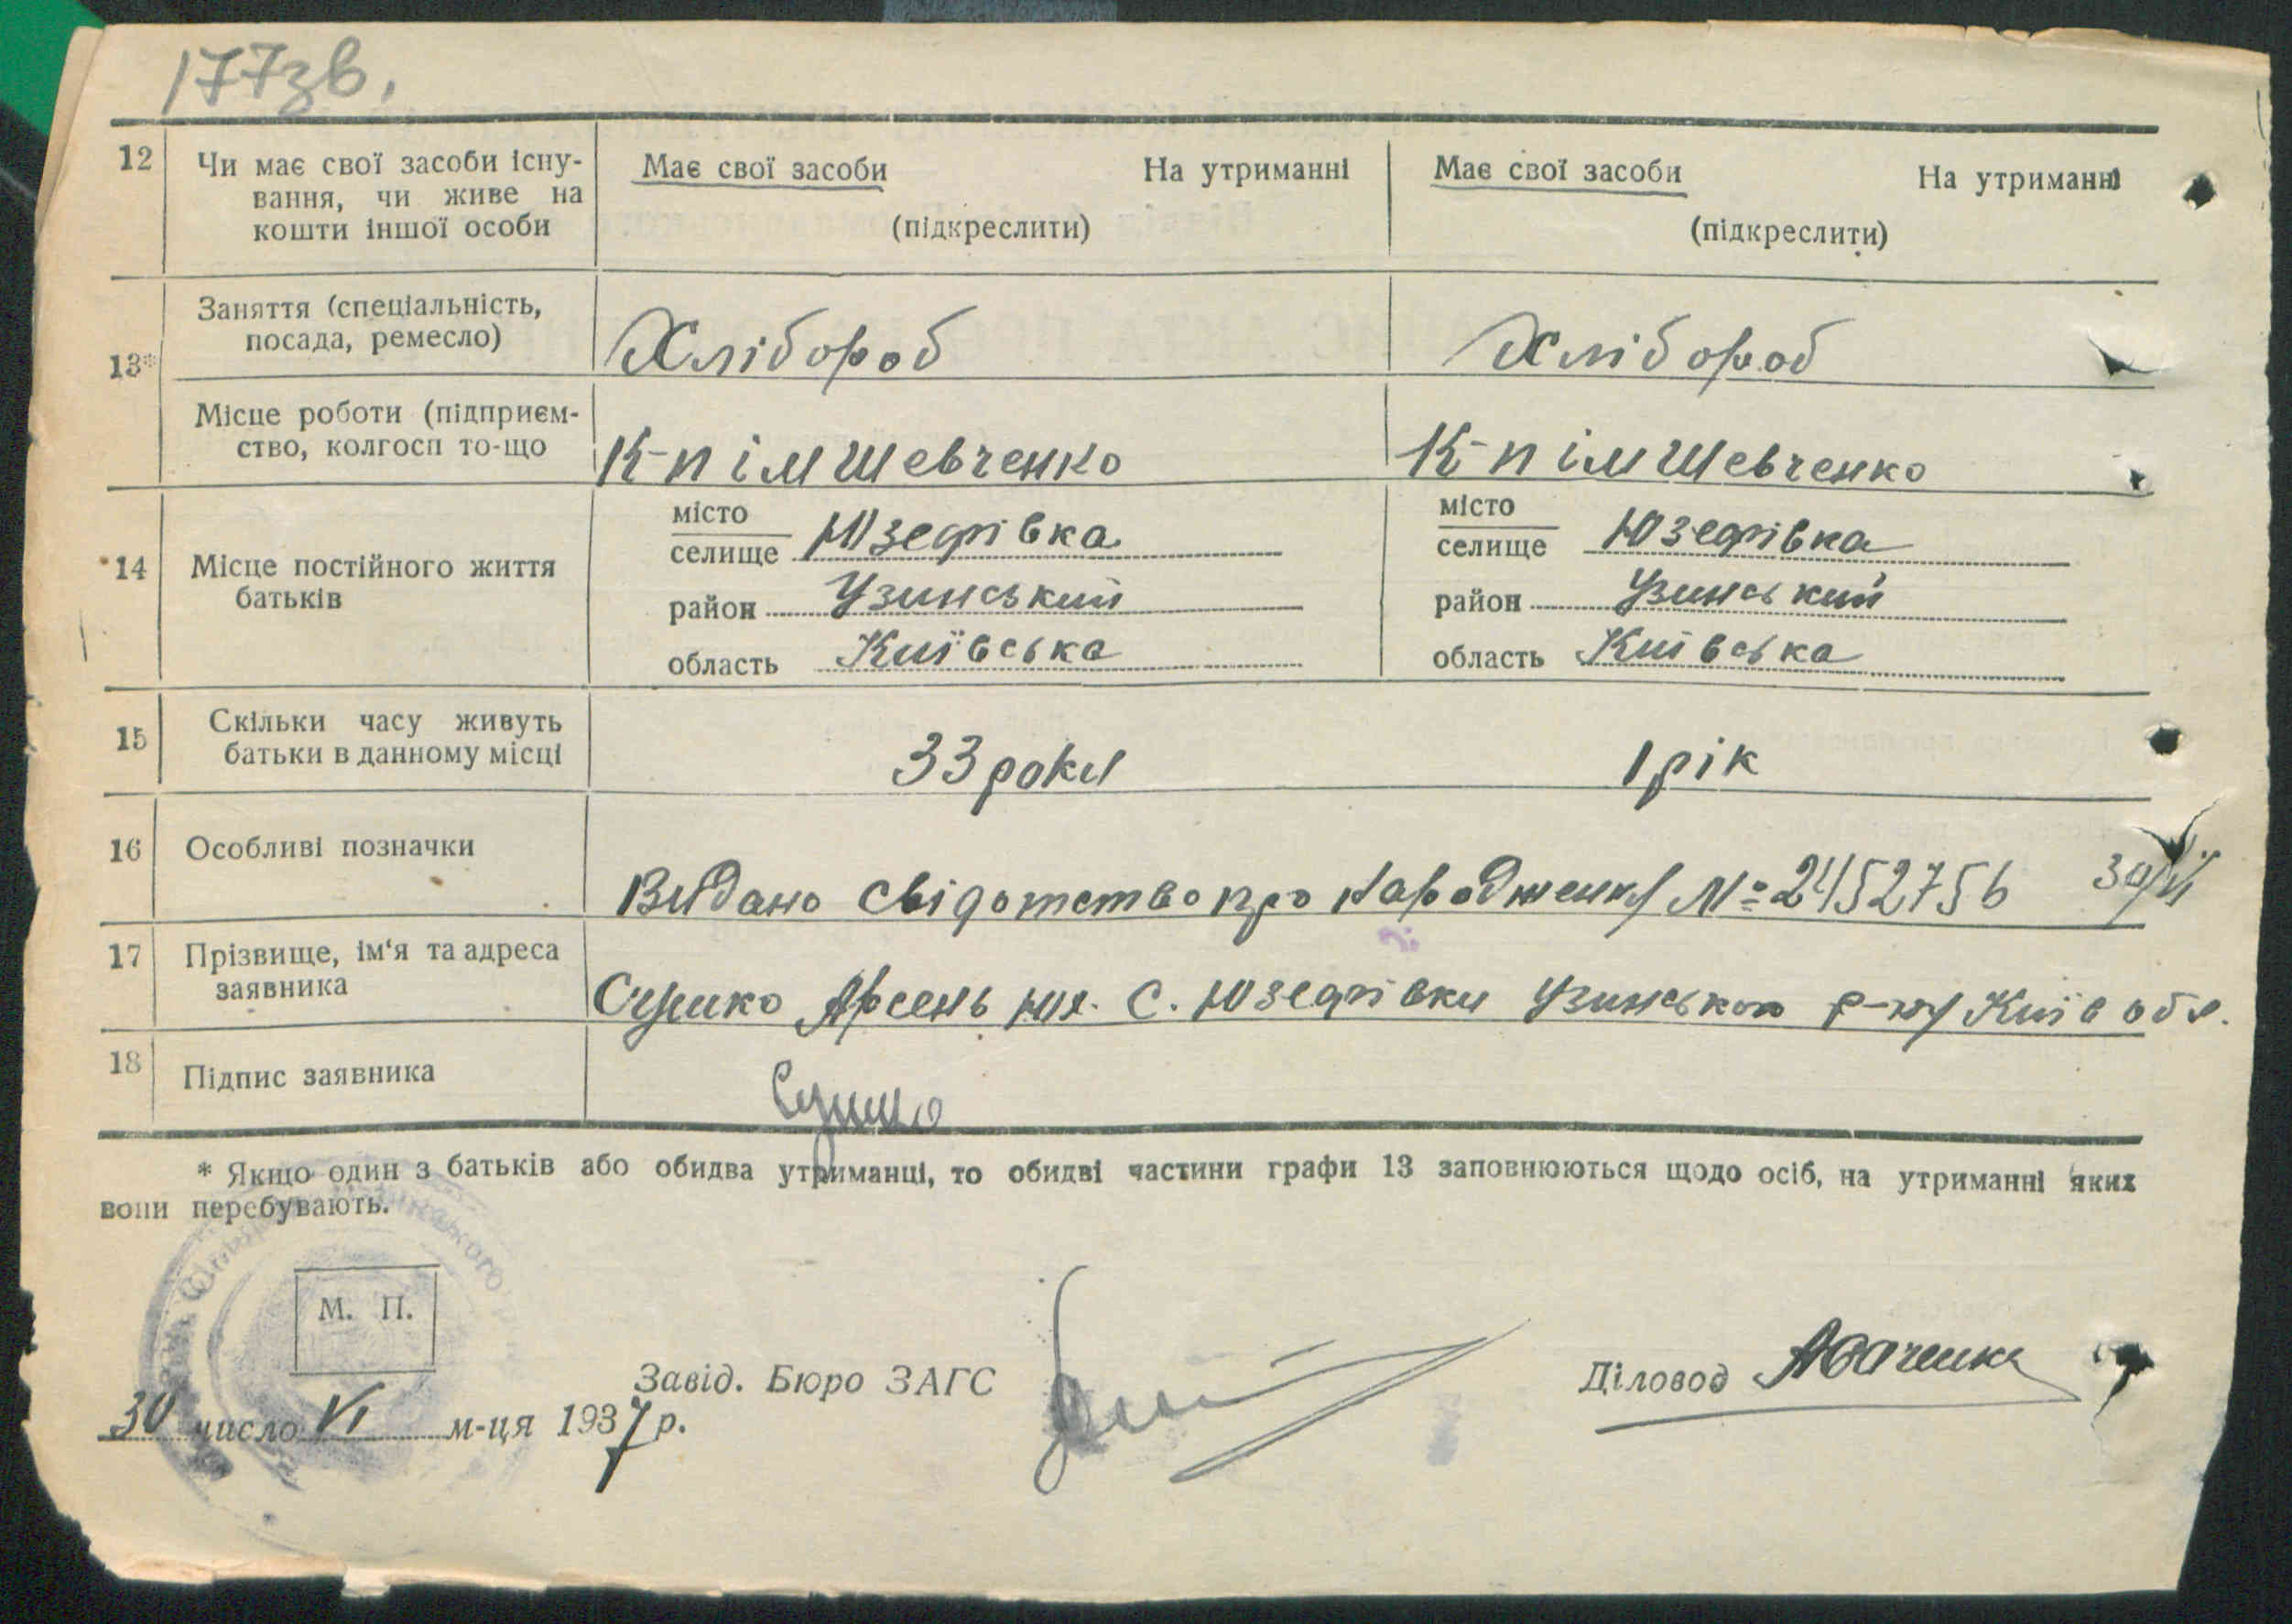 177зв.
12 Чи має свої засоби існу- Має свої засоби На утриманні Має свої засоби На утриманні
вання, чи живе на
кошти іншої особи (підкреслити) (підкреслити)
Заняття (спеціальність,
посада, ремесло) Хлібороб Хлібороб
13*
Місце роботи (підприєм-
ство, колгосп то-що К-п ім Шевченко К-п ім Шевченко
місто місто
селище Юзефівка селище Юзефівка
14 Місце постійного життя
батьків район Узинський район Узинський
область Київська область Київська
15 Скільки часу живуть
батьки в данному місці 33 роки 1 рік
16 Особливі позначки
Видано свідотство про народження № 2452756 30/VI
17 Прізвище, ім‘я та адреса
заявника Сушко Арсень Юх. С. Юзефівки Узинського р-ну Київ обл.
18 Підпис заявника Сушко
* Якщо один з батьків або обидва утриманці, то обидві частини графи 13 заповнюються щодо осіб, на утриманні яких
вони перебувають.
М. П.
Завід. Бюро ЗАГС Діловод
30 число VI м-ця 1937 р.